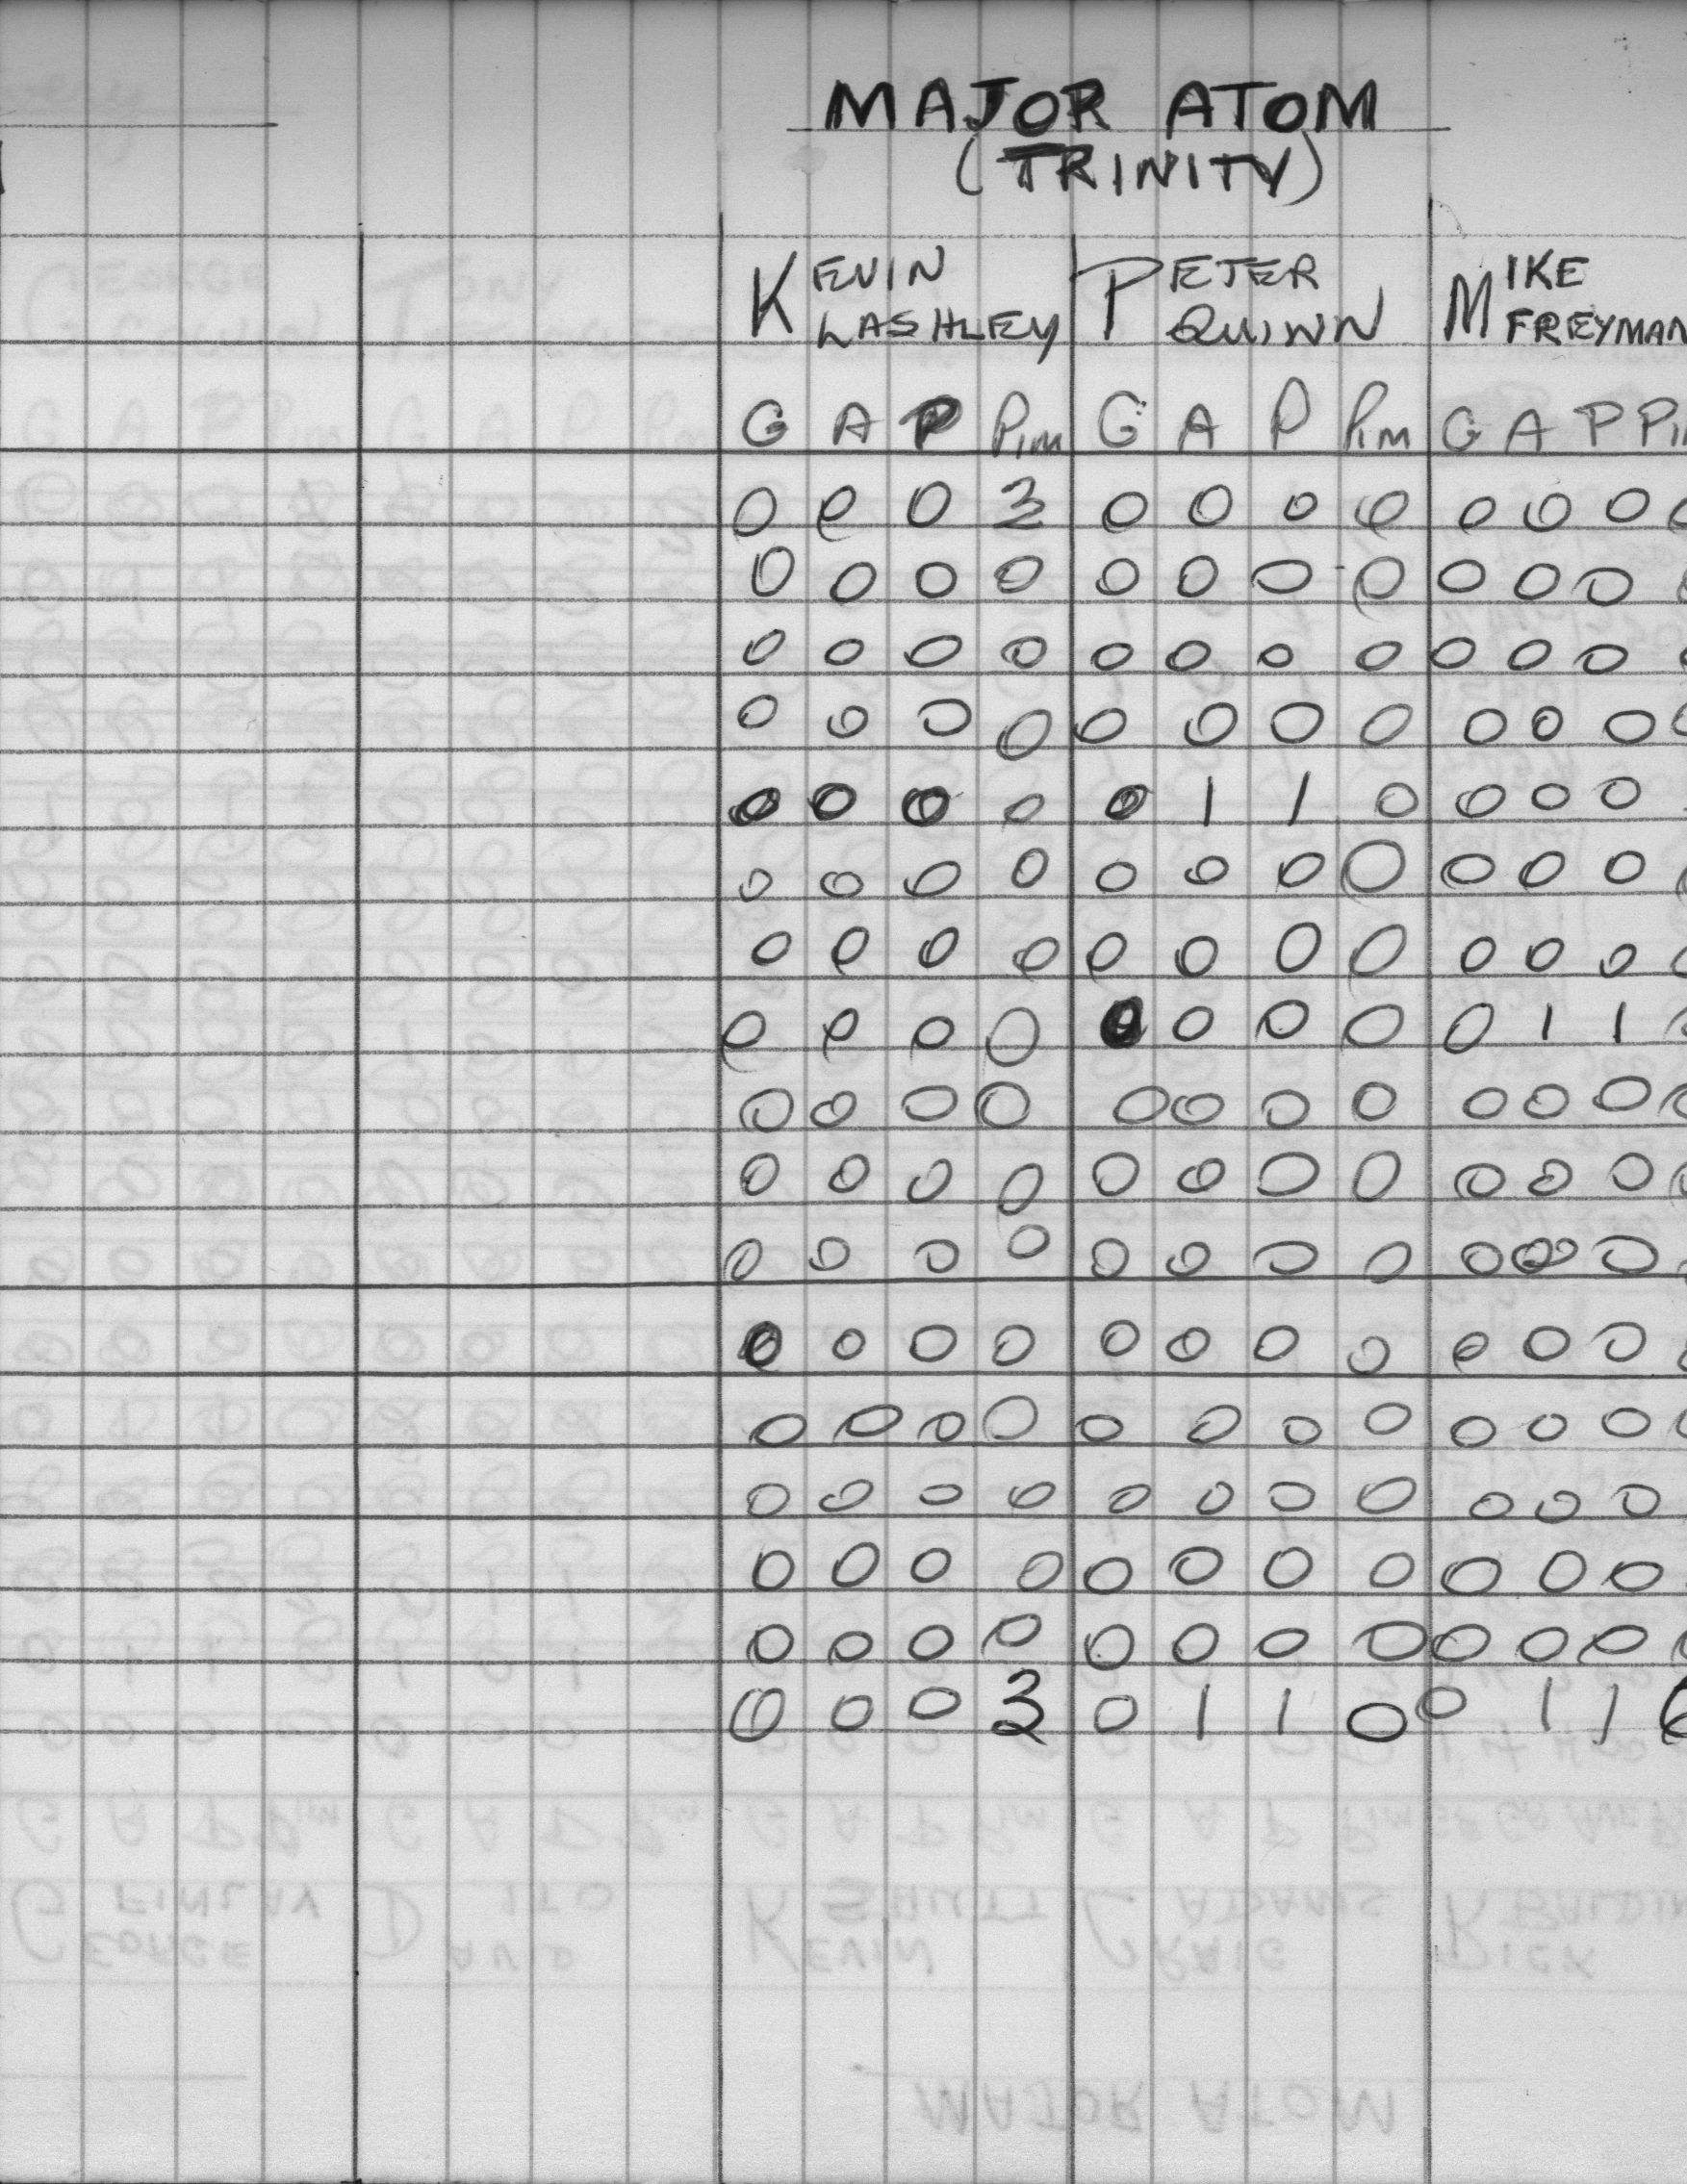 MAJOR ATOM
(TRINITY)
KEVIN LASHLEY PETER QUINN MIKE FREYMAN
G A P PIM G A P PIM G A P PI
0 0 0 3 0 0 0 0 0 0 0 0
0 0 0 0 0 0 0 0 0 0 0 0
0 0 0 0 0 0 0 0 0 0 0 0
0 0 0 0 0 0 0 0 0 0 0 0
0 0 0 0 0 1 1 0 0 0 0
0 0 0 0 0 0 0 0 0 0 0 0
0 0 0 0 0 0 0 0 0 0 0 0
0 0 0 0 0 0 0 0 0 1 1
0 0 0 0 0 0 0 0 0 0 0 0
0 0 0 0 0 0 0 0 0 0 0 0
0 0 0 0 0 0 0 0 0 0 0
0 0 0 0 0 0 0 0 0 0 0
0 0 0 0 0 0 0 0 0 0 0 0
0 0 0 0 0 0 0 0 0 0 0
0 0 0 0 0 0 0 0 0 0 0
0 0 0 0 0 0 0 0 0 0 0 0
0 0 0 3 0 1 1 0 0 1 1